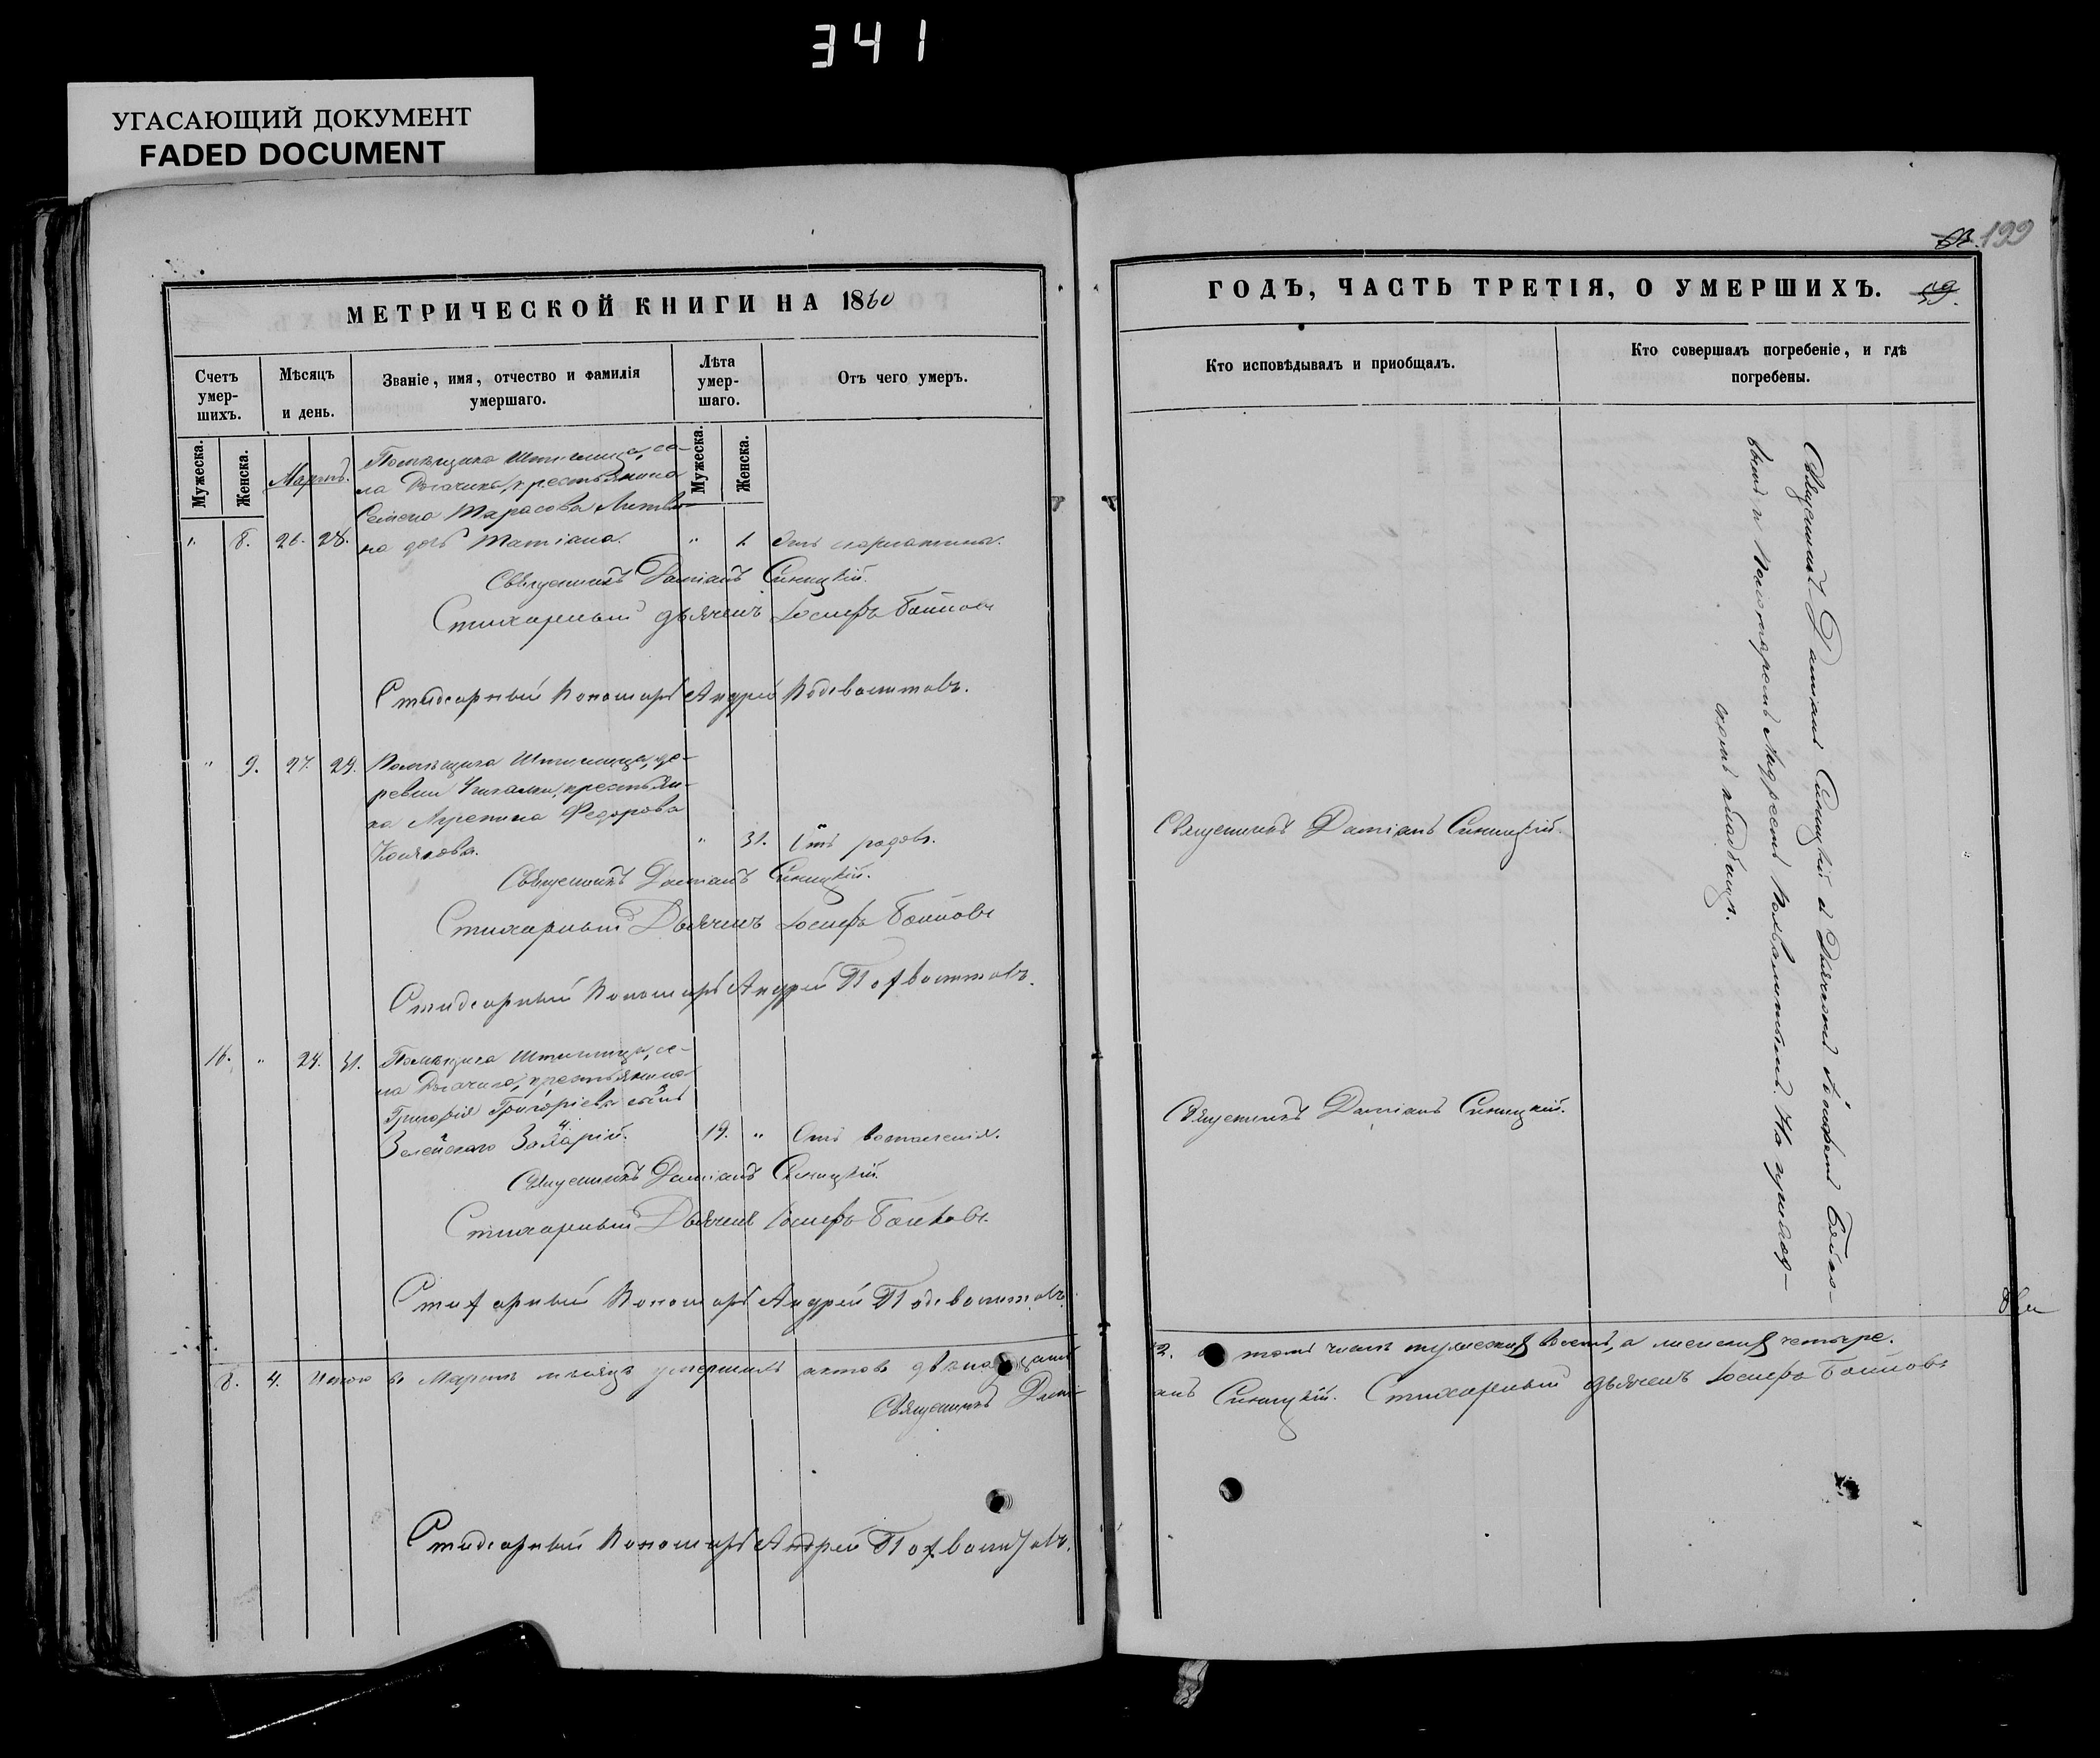 341
УГАСАЮЩИЙ ДОКУМЕНТ
FADED DOCUMENT
МЕТРИЧЕСКОЙ КНИГИ НА 1860
Счетъ умер-
шихъ.
Мѣсяцъ
и день.
Званіе, имя, отчество и фамилія
умершаго.
Лѣта
умер-
шаго.
Отъ чего умеръ.
Мужеска.
Женска.
Мартъ.
Мужеска.
Женска.
Помѣщика Штиглица, се-
ла Рогачика, крестьянина
Семена Тарасова Литви-
" 8. 26. 28. на дочь Татіана. " 1. Отъ скарлатины.
Священникъ Даміанъ Синицкій.
Стихарный дьячекъ Іосифъ Бойковъ
Стихарный Пономарь Андрей
" 9. 27. 29. Помѣщика Штиглица, де-
ревни крестьян-
ка Агрепина Федорова
" 31. Отъ родовъ.
Священникъ Даміанъ Синицкій.
Стихарный Дьячекъ Іосифъ Бойковъ
Стихарный Пономарь Андрей
16. " 29. 31. Помѣщика Штиглица, се-
ла Рогачика, крестьянина
Григорія Григоріева сынъ
19. " Отъ воспаленія.
Священникъ Даміанъ Синицкій.
Стихарный Дьячекъ Іосифъ Бойковъ.
Стихарный Пономарь Андрей
8. 4. Итого въ Мартѣ мѣсяцѣ умершихъ актовъ двѣнадцать
Священникъ Дамі-
Стихарный Пономарь Андрей
199
59.
ГОДЪ, ЧАСТЬ ТРЕТІЯ, О УМЕРШИХЪ.
Кто исповѣдывалъ и приобщалъ.
Кто совершалъ погребеніе, и гдѣ
погребены.
Священникъ Даміанъ Синицкій.
Священникъ Даміанъ Синицкій.
Священникъ Даміанъ Синицкій съ Дьячкомъ Іосифомъ Бойко-
вымъ и Пономаремъ Андреемъ На приход-
скомъ кладбищѣ.
12. въ томъ числѣ мужескихъ восемь, а женскихъ четыре.
анъ Синицкій. Стихарный дьячекъ Іосифъ Бойковъ